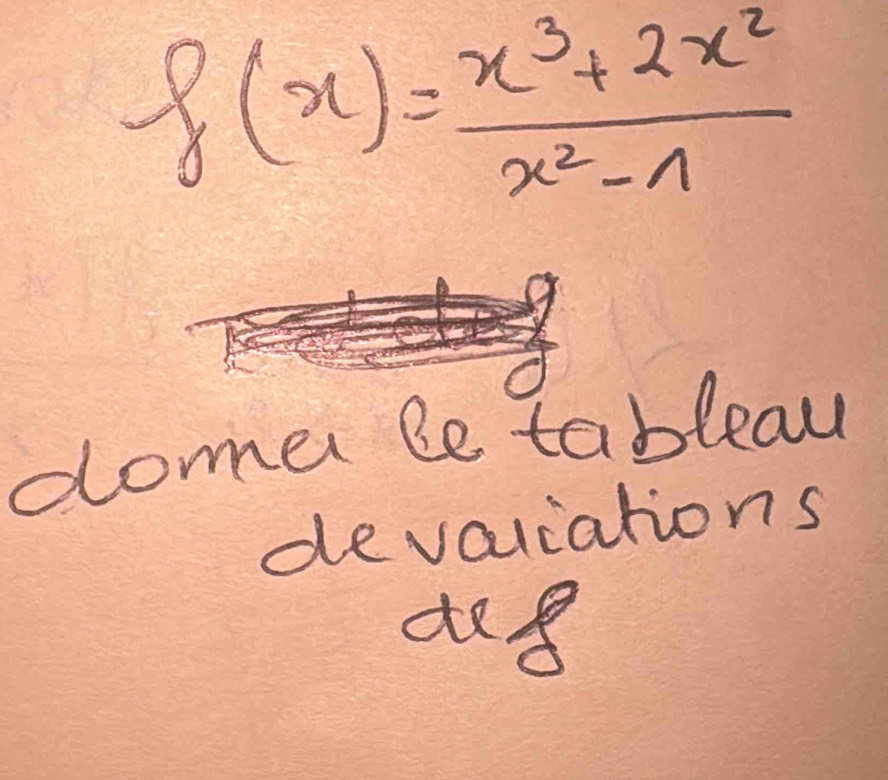 f(x) = x³ + 2x² / x² - 1
donner le tableau
de variations
de f